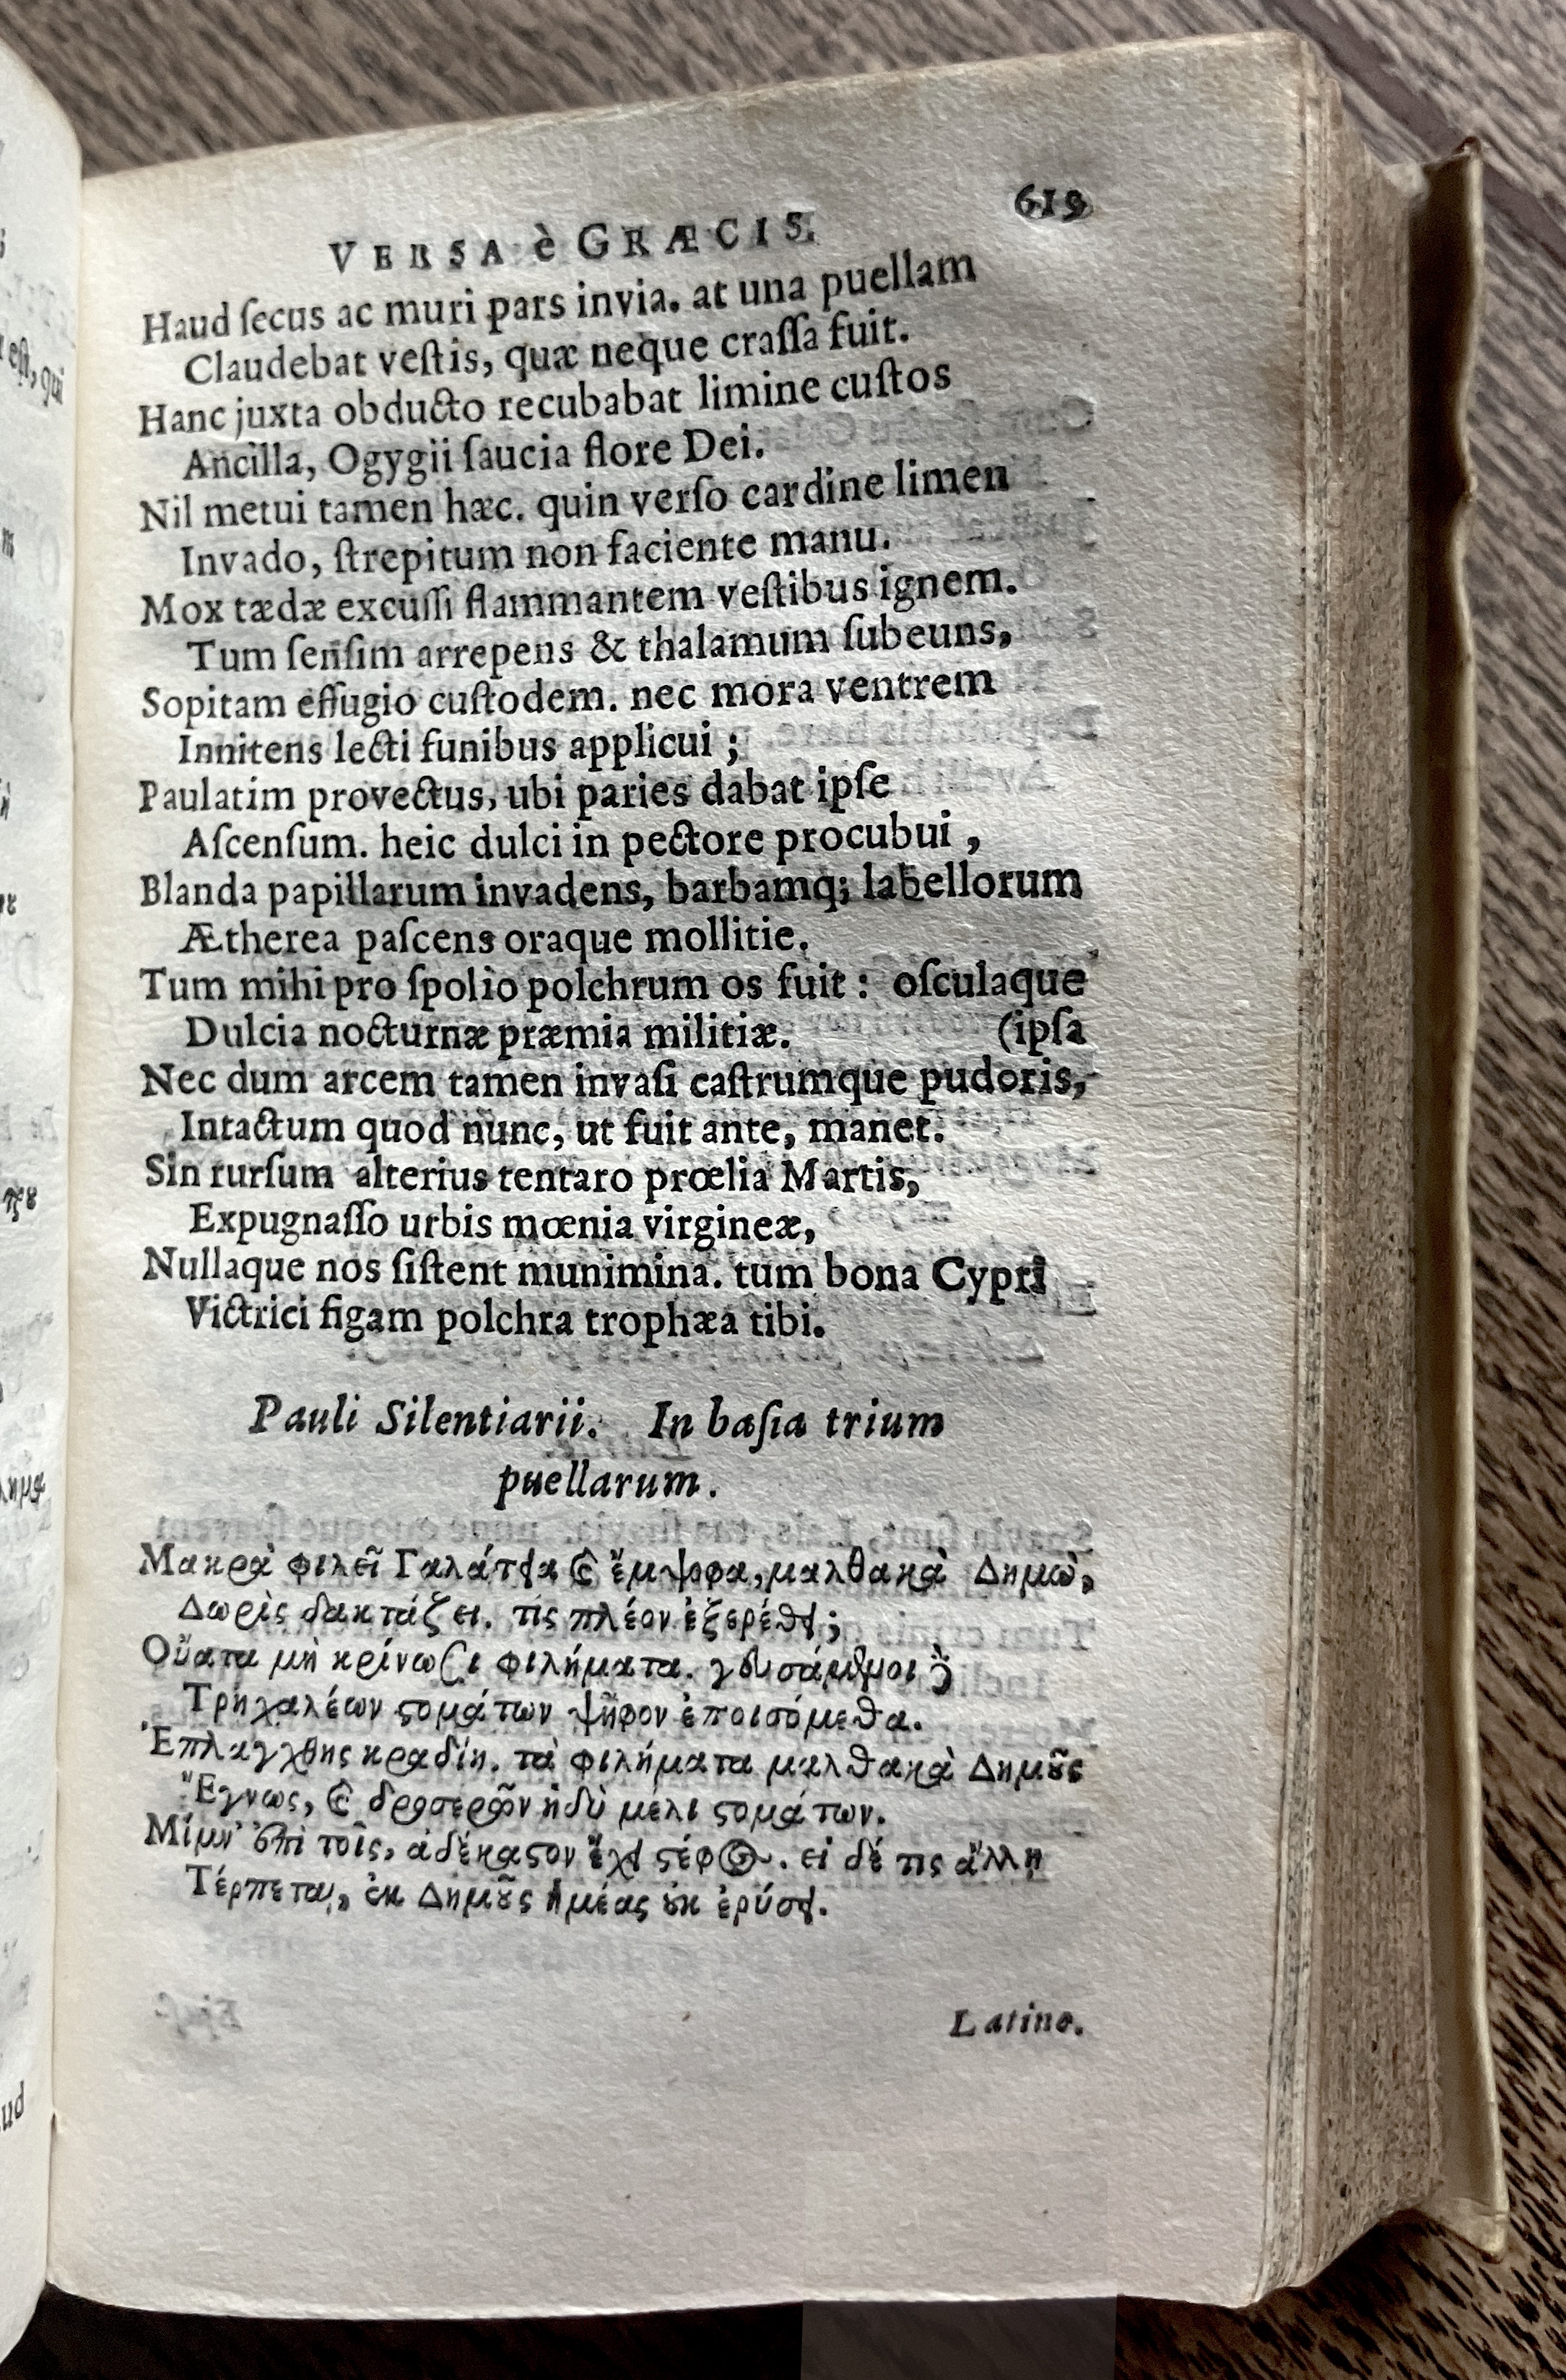 619
VERSA è GRÆCIS.
Haud ſecus ac muri pars invia. at una puellam
Claudebat veſtis, quæ neque craſſa fuit.
Hanc juxta obducto recubabat limine cuſtos
Ancilla, Ogygii ſaucia flore Dei.
Nil metui tamen hæc. quin verſo cardine limen
Invado, ſtrepitum non faciente manu.
Mox tædæ excuſſi flammantem veſtibus ignem.
Tum ſenſim arrepens & thalamum ſubeuns,
Sopitam effugio cuſtodem. nec mora ventrem
Innitens lecti funibus applicui ;
Paulatim provectus, ubi paries dabat ipſe
Aſcenſum. heic dulci in pectore procubui ,
Blanda papillarum invadens, barbamq; labellorum
Ætherea paſcens oraque mollitie.
Tum mihi pro ſpolio polchrum os fuit : oſculaque
Dulcia nocturnæ præmia militiæ. (ipſa
Nec dum arcem tamen invaſi caſtrumque pudoris,
Intactum quod nunc, ut fuit ante, manet.
Sin rurſum alterius tentaro prœlia Martis,
Expugnaſſo urbis mœnia virgineæ,
Nullaque nos ſiſtent munimina. tum bona Cypri
Victrici figam polchra trophæa tibi.
Pauli Silentiarii. In baſia trium
puellarum.
Μακρὰ φιλεῖ Γαλάτεια καὶ ἔμψοφα, μαλθακὰ Δημὼ,
Δωρὶς δακτάζει. τίς πλέον ἐξερέθει;
Οὔατα μὴ κρίνωσι φιλήματα. γευσάμενοι δὲ
Τρηχαλέων ϛομάτων ψῆφον ἐποισόμεθα.
Ἐπλάγχθης κραδίη. τὰ φιλήματα μαλθακὰ Δημοῦς
Ἔγνως, καὶ δροσερῶν ἡδὺ μέλι ϛομάτων.
Μίμν' ἐπὶ τοῖς, ἀδέκαϛον ἔχει ϛέφος. εἰ δέ τις ἄλλῃ
Τέρπεται, ἐκ Δημοῦς ἡμέας οὐκ ἐρύσει.
Latine.